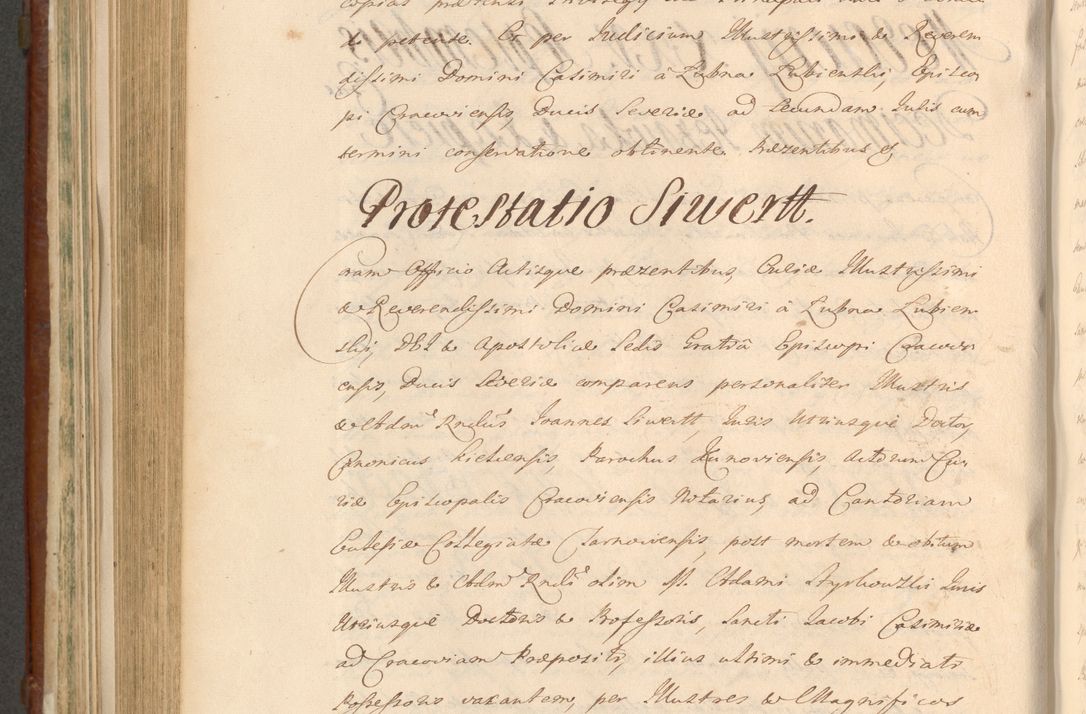 & petente. Et per Judicium Illustrissimi & Reveren
dissimi Domini Casimiri à Łubna Łubienski, Episco
pi Cracoviensis, Ducis Severiæ ad secundam Juris cum
termini conservatione obtinente. Præzentibus et,
Protestatio Siwertt.
Coram Officio Actisque præzentibus, Curiæ Illustrissimi
& Reverendissimi Domini Casimiri à Łubna Łubien
skij, DEI & Apostolicæ Sedis Gratiâ Episcopi Cracovi
ensis, Ducis Severiæ comparens personaliter Illustris
& Adm. Rndus Joannes Siwertt, Juris Utriusque Doctor,
Canonicus Kielcensis, Parochus Łunoviensis, Actorum Cu
riæ Episcopalis Cracoviensis Notarius, ad Cantoriam
Ecclesiæ Collegiatæ Tarnoviensis, post mortem & obitum
Illustris & Adm. Rndi olim M. Adami Juris
Utriusque Doctoris & Professoris, Sancti Jacobi Casimiriæ
ad Cracoviam Præpositi, illius ultimi & immediati
Possessoris vacantem, per Illustres & Magnificos